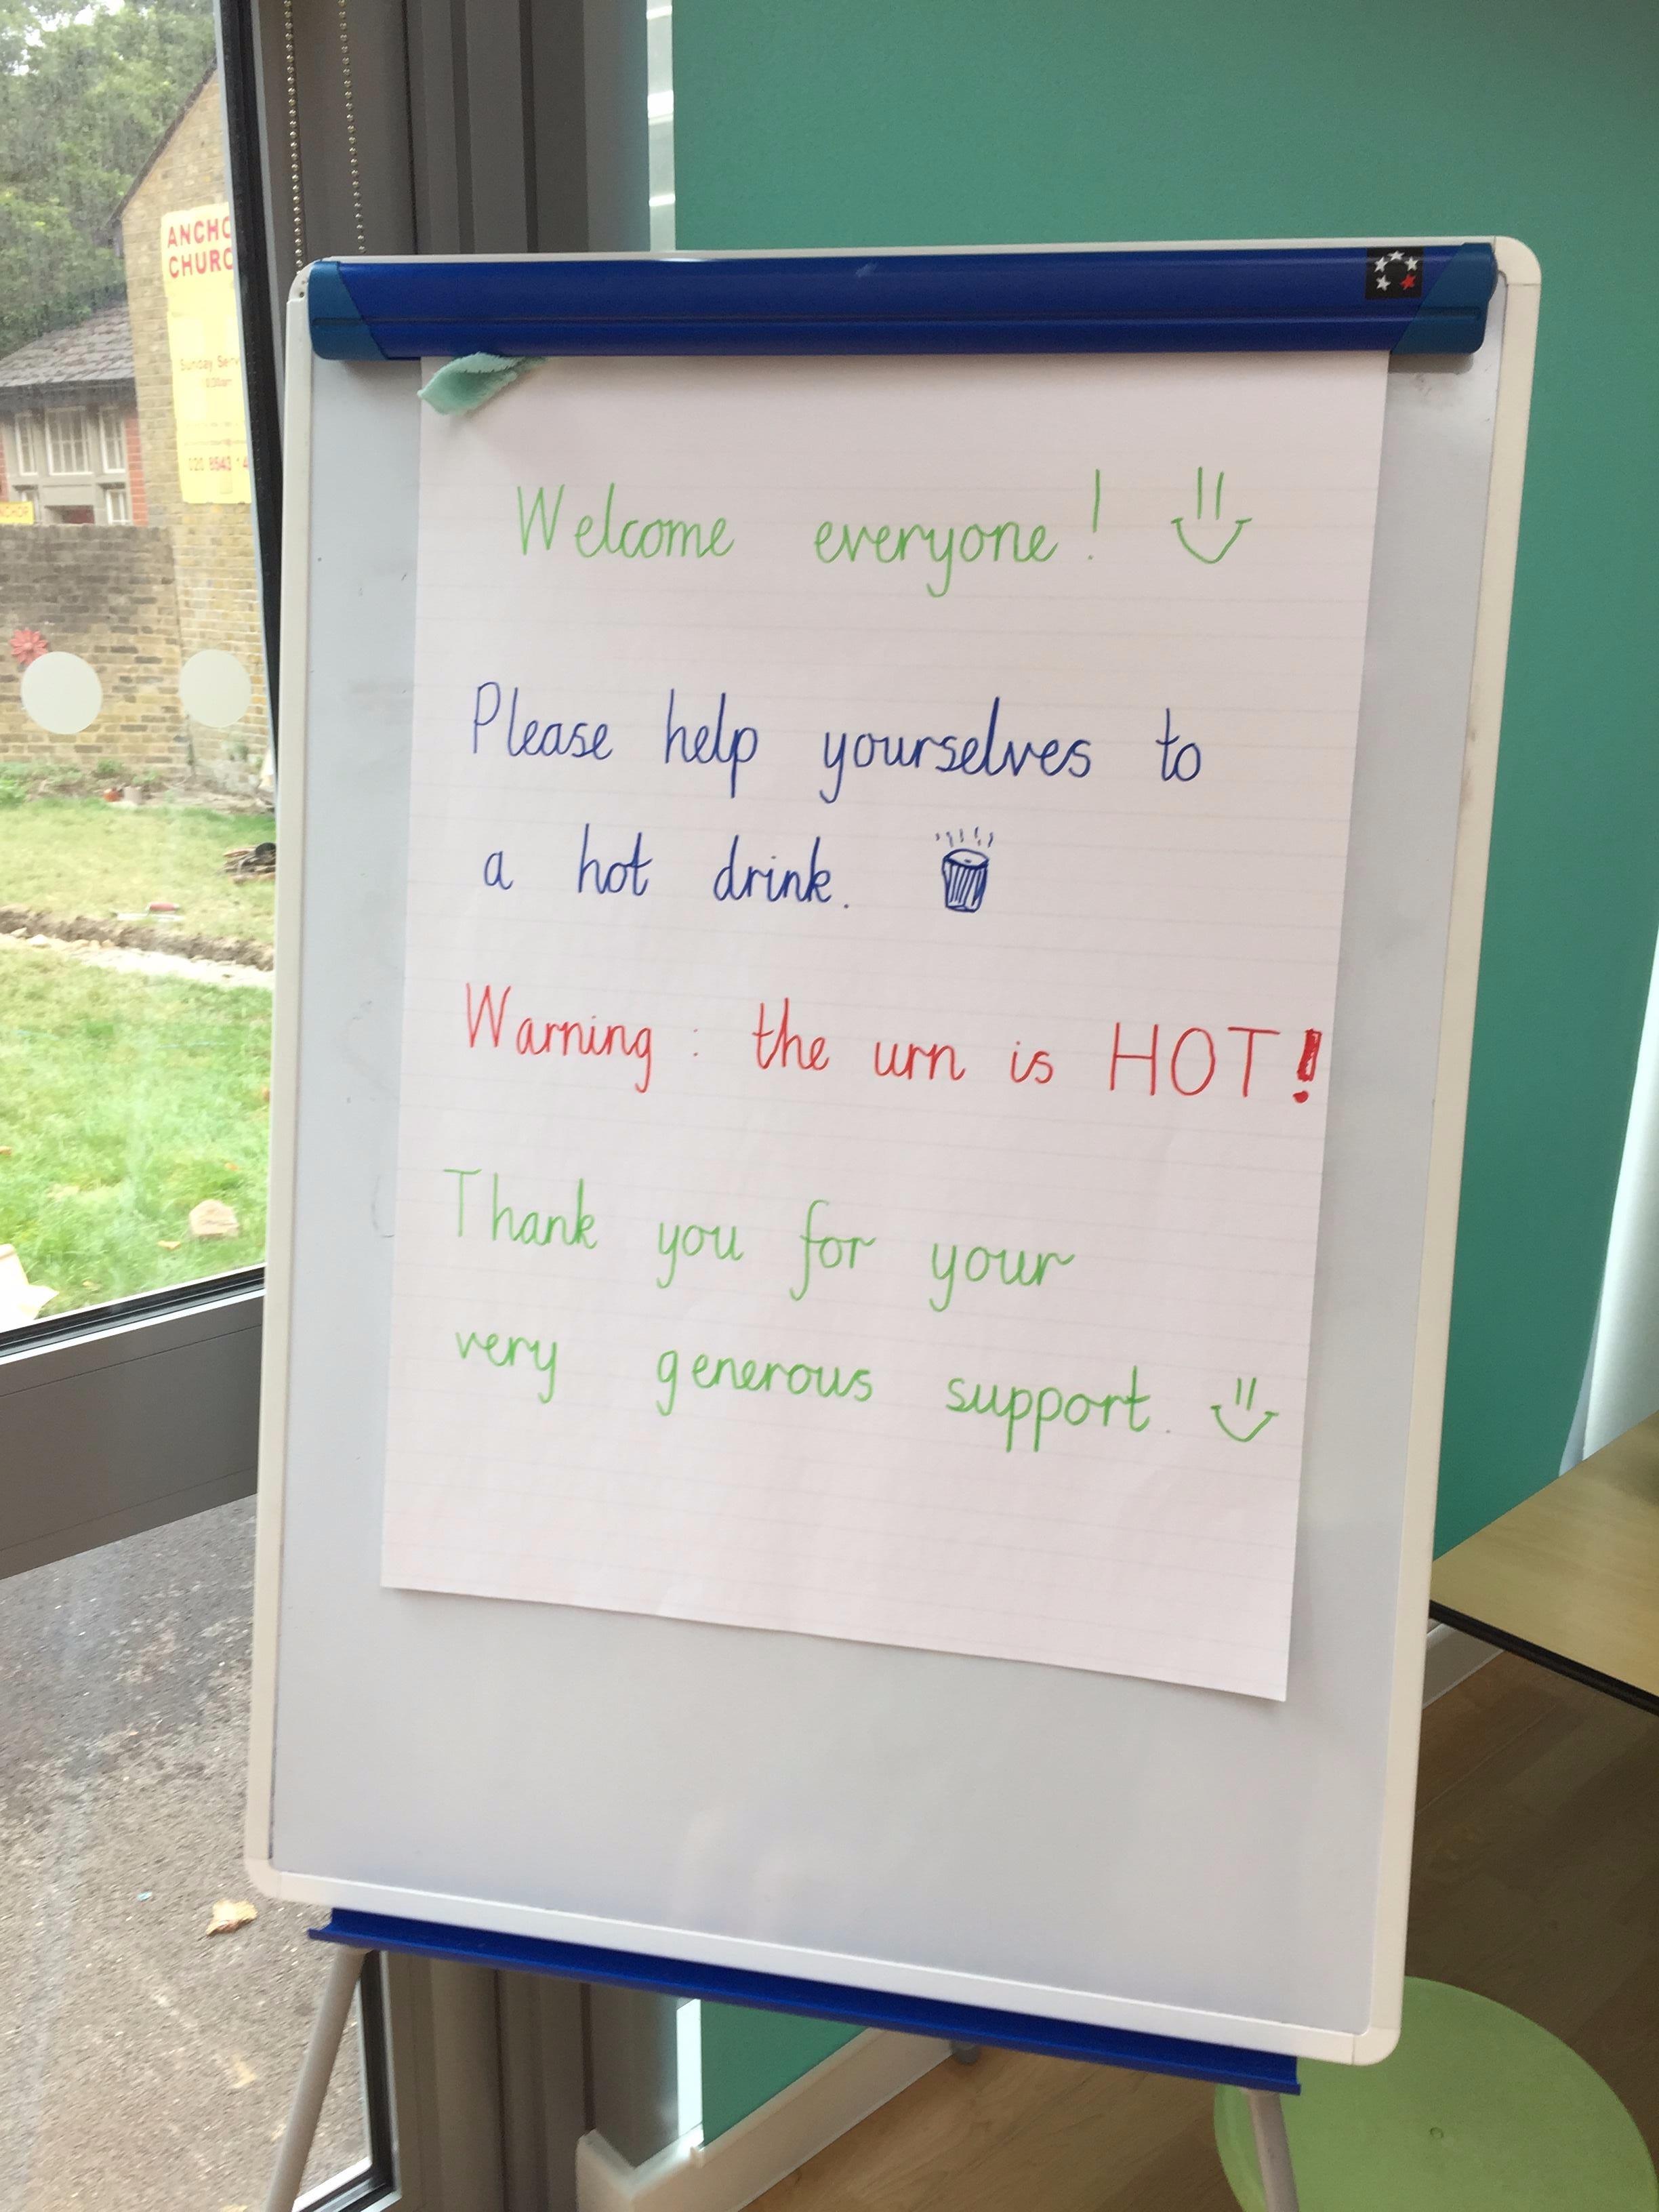 Welcome everyone!
Please help yourselves to
a hot drink.
Warning : the urn is HOT!
Thank you for your
very generous support.
ANCHO
CHURC
Sunday Serv
020 8543 14